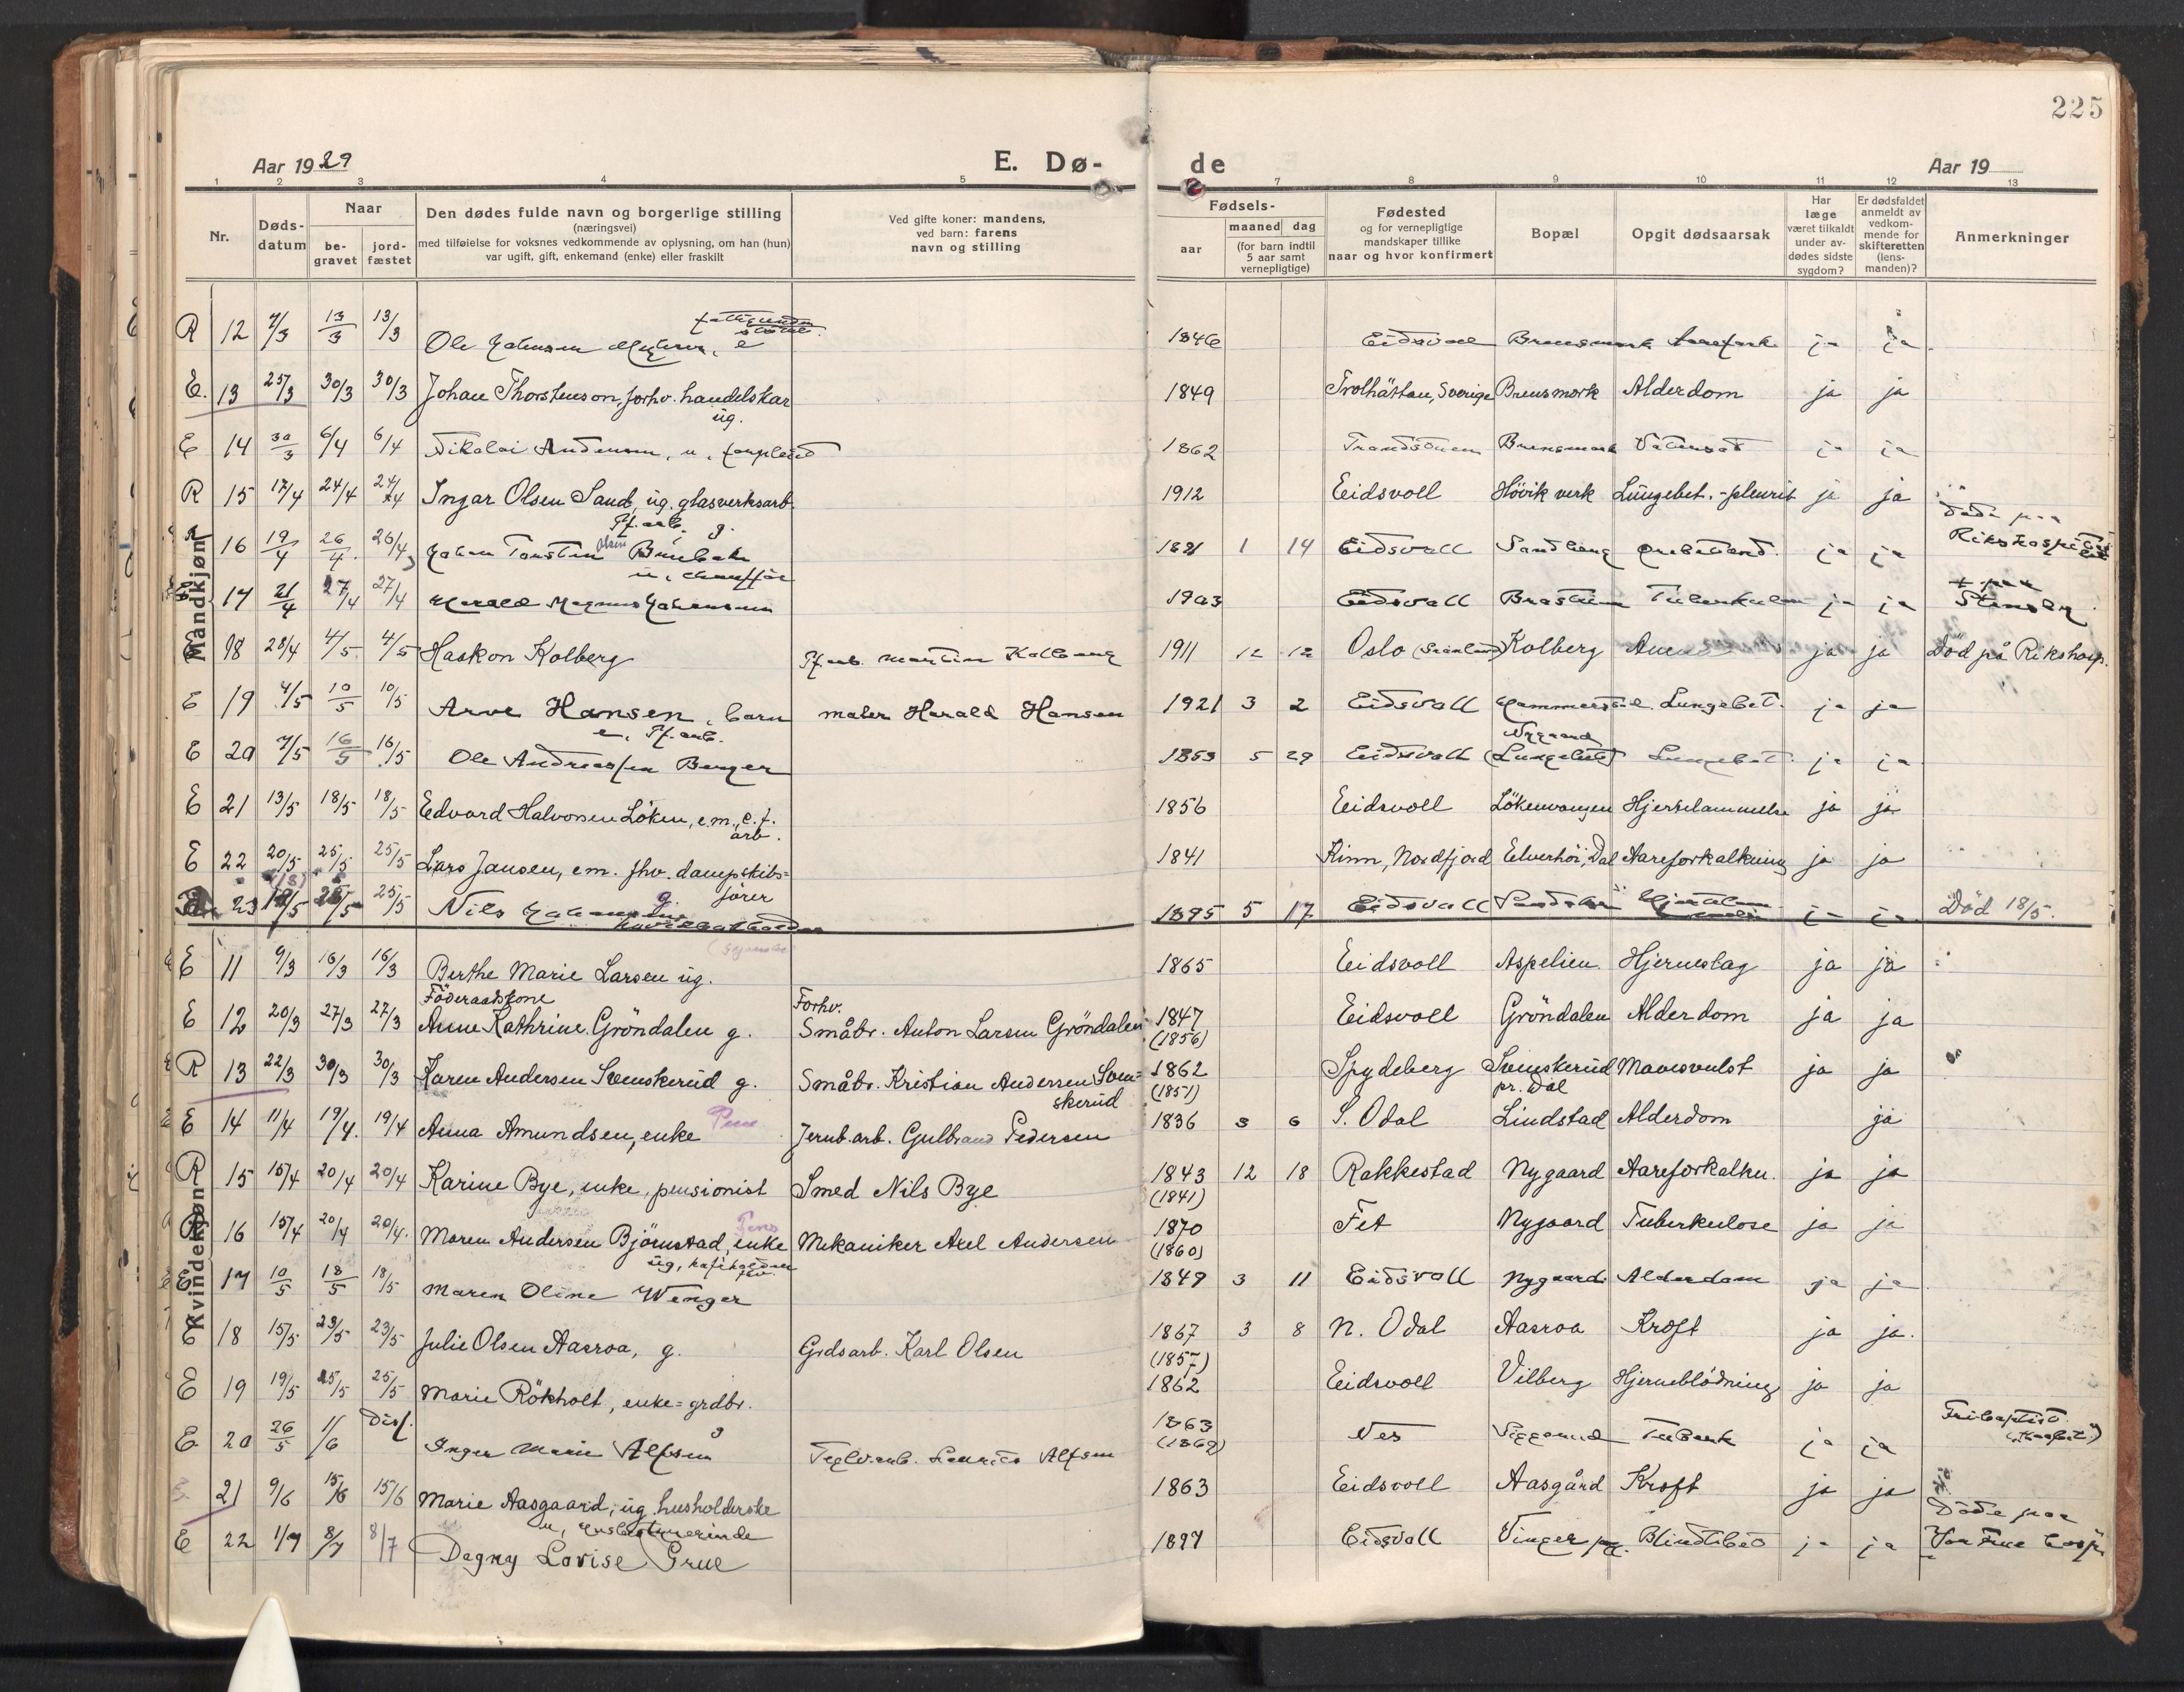 225
Aar 1929
E. Dø-
de
Aar 19
1 2 3 4 5 7 8 9 10 11 12 13
Nr.
Døds-
datum
Naar
be-
gravet
jord-
fæstet
Den dødes fulde navn og borgerlige stilling
(næringsvei)
med tilføielse for voksnes vedkommende av oplysning, om han (hun)
var ugift, gift, enkemand (enke) eller fraskilt
Ved gifte koner: mandens,
ved barn: farens
navn og stilling
Fødsels-
aar
maaned dag
(for barn indtil
5 aar samt
vernepligtige)
Fødested
og for vernepligtige
mandskaper tillike
naar og hvor konfirmert
Bopæl
Opgit dødsaarsak
Har
læge
været tilkaldt
under av-
dødes sidste
sygdom?
Er dødsfaldet
anmeldt av
vedkom-
mende for
skifteretten
(lens-
manden)?
Anmerkninger
Mandkjøn
R 12 7/3 13/3 13/3 Ole e 1846 Eidsvoll ja ja
E. 13 25/3 30/3 30/3 Johan Thorstenson, forhv. handelskar 1849 Trolhättan, Sverige Brensmork Alderdom ja ja
ug.
E 14 30/3 6/4 6/4 Nikolai Andersen, u. 1862 ja ja
R 15 17/4 24/4 24/4 Ingar Olsen Sand, ug. glasverksarb. 1912 Eidsvoll Hövik verk Lungebet.-pleurit ja ja
Pf. arb. g. Döde paa
16 19/4 26/4 26/4 Torsten Olsen 1 14 Eidsvoll Sandberg ja ja Rikshospitalet
u, chaufför
17 21/4 27/4 27/4 Harald Magnus Johansen 1903 Eidsvoll ja ja Stensby
E 18 28/4 4/5 4/5 Haakon Kolberg Pf. arb. Martin Kolberg 1911 12 12 Oslo Kolberg ja ja Död på Rikshosp.
E 19 4/5 10/5 10/5 Arve Hansen, barn maler Harald Hansen 1921 3 2 Eidsvoll Lungebet. ja ja
e, Pf. arb. Nygaard
E 20 7/5 16/5 16/5 Ole Andreassen Berger 1853 5 29 Eidsvoll (Lungebet) Lungebet. ja ja
E 21 13/5 18/5 18/5 Edvard Halvorsen Löken, e.m., e.f. 1856 Eidsvoll Lökenvangen Hjertelammelse ja ja
arb.
E 22 20/5 25/5 25/5 Lars Jansen, em. fhv. dampskibs= 1841 Kinn, Nordfjord Elverhöi, Dal Aareforkalkning ja ja
förer
23 25/5 25/5 Nils g. 1895 5 17 Eidsvoll ja ja Död 18/5.
Kvindekjøn
E 11 9/3 16/3 16/3 Berthe Marie Larsen ug. 1865 Eidsvoll Aspelien Hjerneslag ja ja
Föderaadskone Forhv.
E 12 20/3 27/3 27/3 Anne Kathrine Gröndalen g. Småbr. Anton Larsen Gröndalen 1847 Eidsvoll Gröndalen Alderdom ja ja
(1856)
R 13 22/3 30/3 30/3 Karen Andersen Svenskerud g. Småbr. Kristian Andersen Sven= 1862 Spydeberg Svenskerud Mavesvulst ja ja
skerud (1851) pr. Dal
E 14 11/4 19/4. 19/4 Anna Amundsen, enke Pens Jernb.arb. Gulbrand Pedersen 1836 3 6 S. Odal Lindstad Alderdom ja
R 15 15/4 20/4 20/4 Karine Bye, enke, pensionist Smed Nils Bye 1843 12 18 Rakkestad Nygaard Aareforkalkn. ja ja
(1841)
R 16 15/4 20/4 20/4. Maren Andersen Björnstad, enke Pens Mekaniker Axel Andersen 1870 Fet Nygaard Tuberkulose ja ja
(1860)
E 17 10/5 18/5 18/5 Maren Oline Wenger 1849 3 11 Eidsvoll Nygaard Alderdom ja ja
E 18 15/5 23/5 23/5 Julie Olsen Aasroa, g. Grdsarb. Karl Olsen 1867 3 8 N. Odal Aasroa Kræft ja ja.
(1857)
E 19 19/5 25/5 25/5 Marie Rökholt, enke=grdbr. 1862 Eidsvoll Vilberg Hjerneblödning ja ja
E 20 26/5 1/6 Diss. Inger Marie Alfsen g Teglv.arb. Alfsen 1863 Nes ja ja
(1869)
21 9/6 15/6 15/6 Marie Aasgaard, ug. husholderske 1863 Eidsvoll Aasgård Kræft ja ja
Döde paa
E 22 1/7 8/7 8/7 Dagny Lovise Grue 1897 Eidsvoll Vinger ja ja